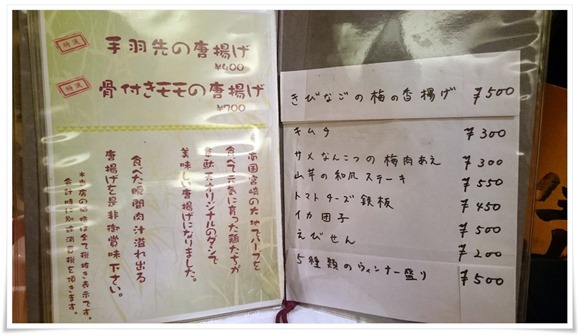 特選
手羽先の唐揚げ
¥400
特選
骨付きモモの唐揚げ
¥700
南国宮崎の大地でハーブを
食べて元気に育った鶏たちが
オリジナルのタレで
美味しい唐揚げになりました。
食べた瞬間肉汁溢れ出る
唐揚げを是非御賞味下さい。
＊当店の価格は全て税抜き表示です。
会計時に別途消費税を頂きます。
きびなごの梅の香揚げ ¥500
キムチ ¥300
サメなんこつの梅肉あえ ¥300
山芋の和風ステーキ ¥550
トマトチーズ鉄板 ¥450
イカ団子 ¥500
えびせん ¥200
5種類のウィンナー盛り ¥500